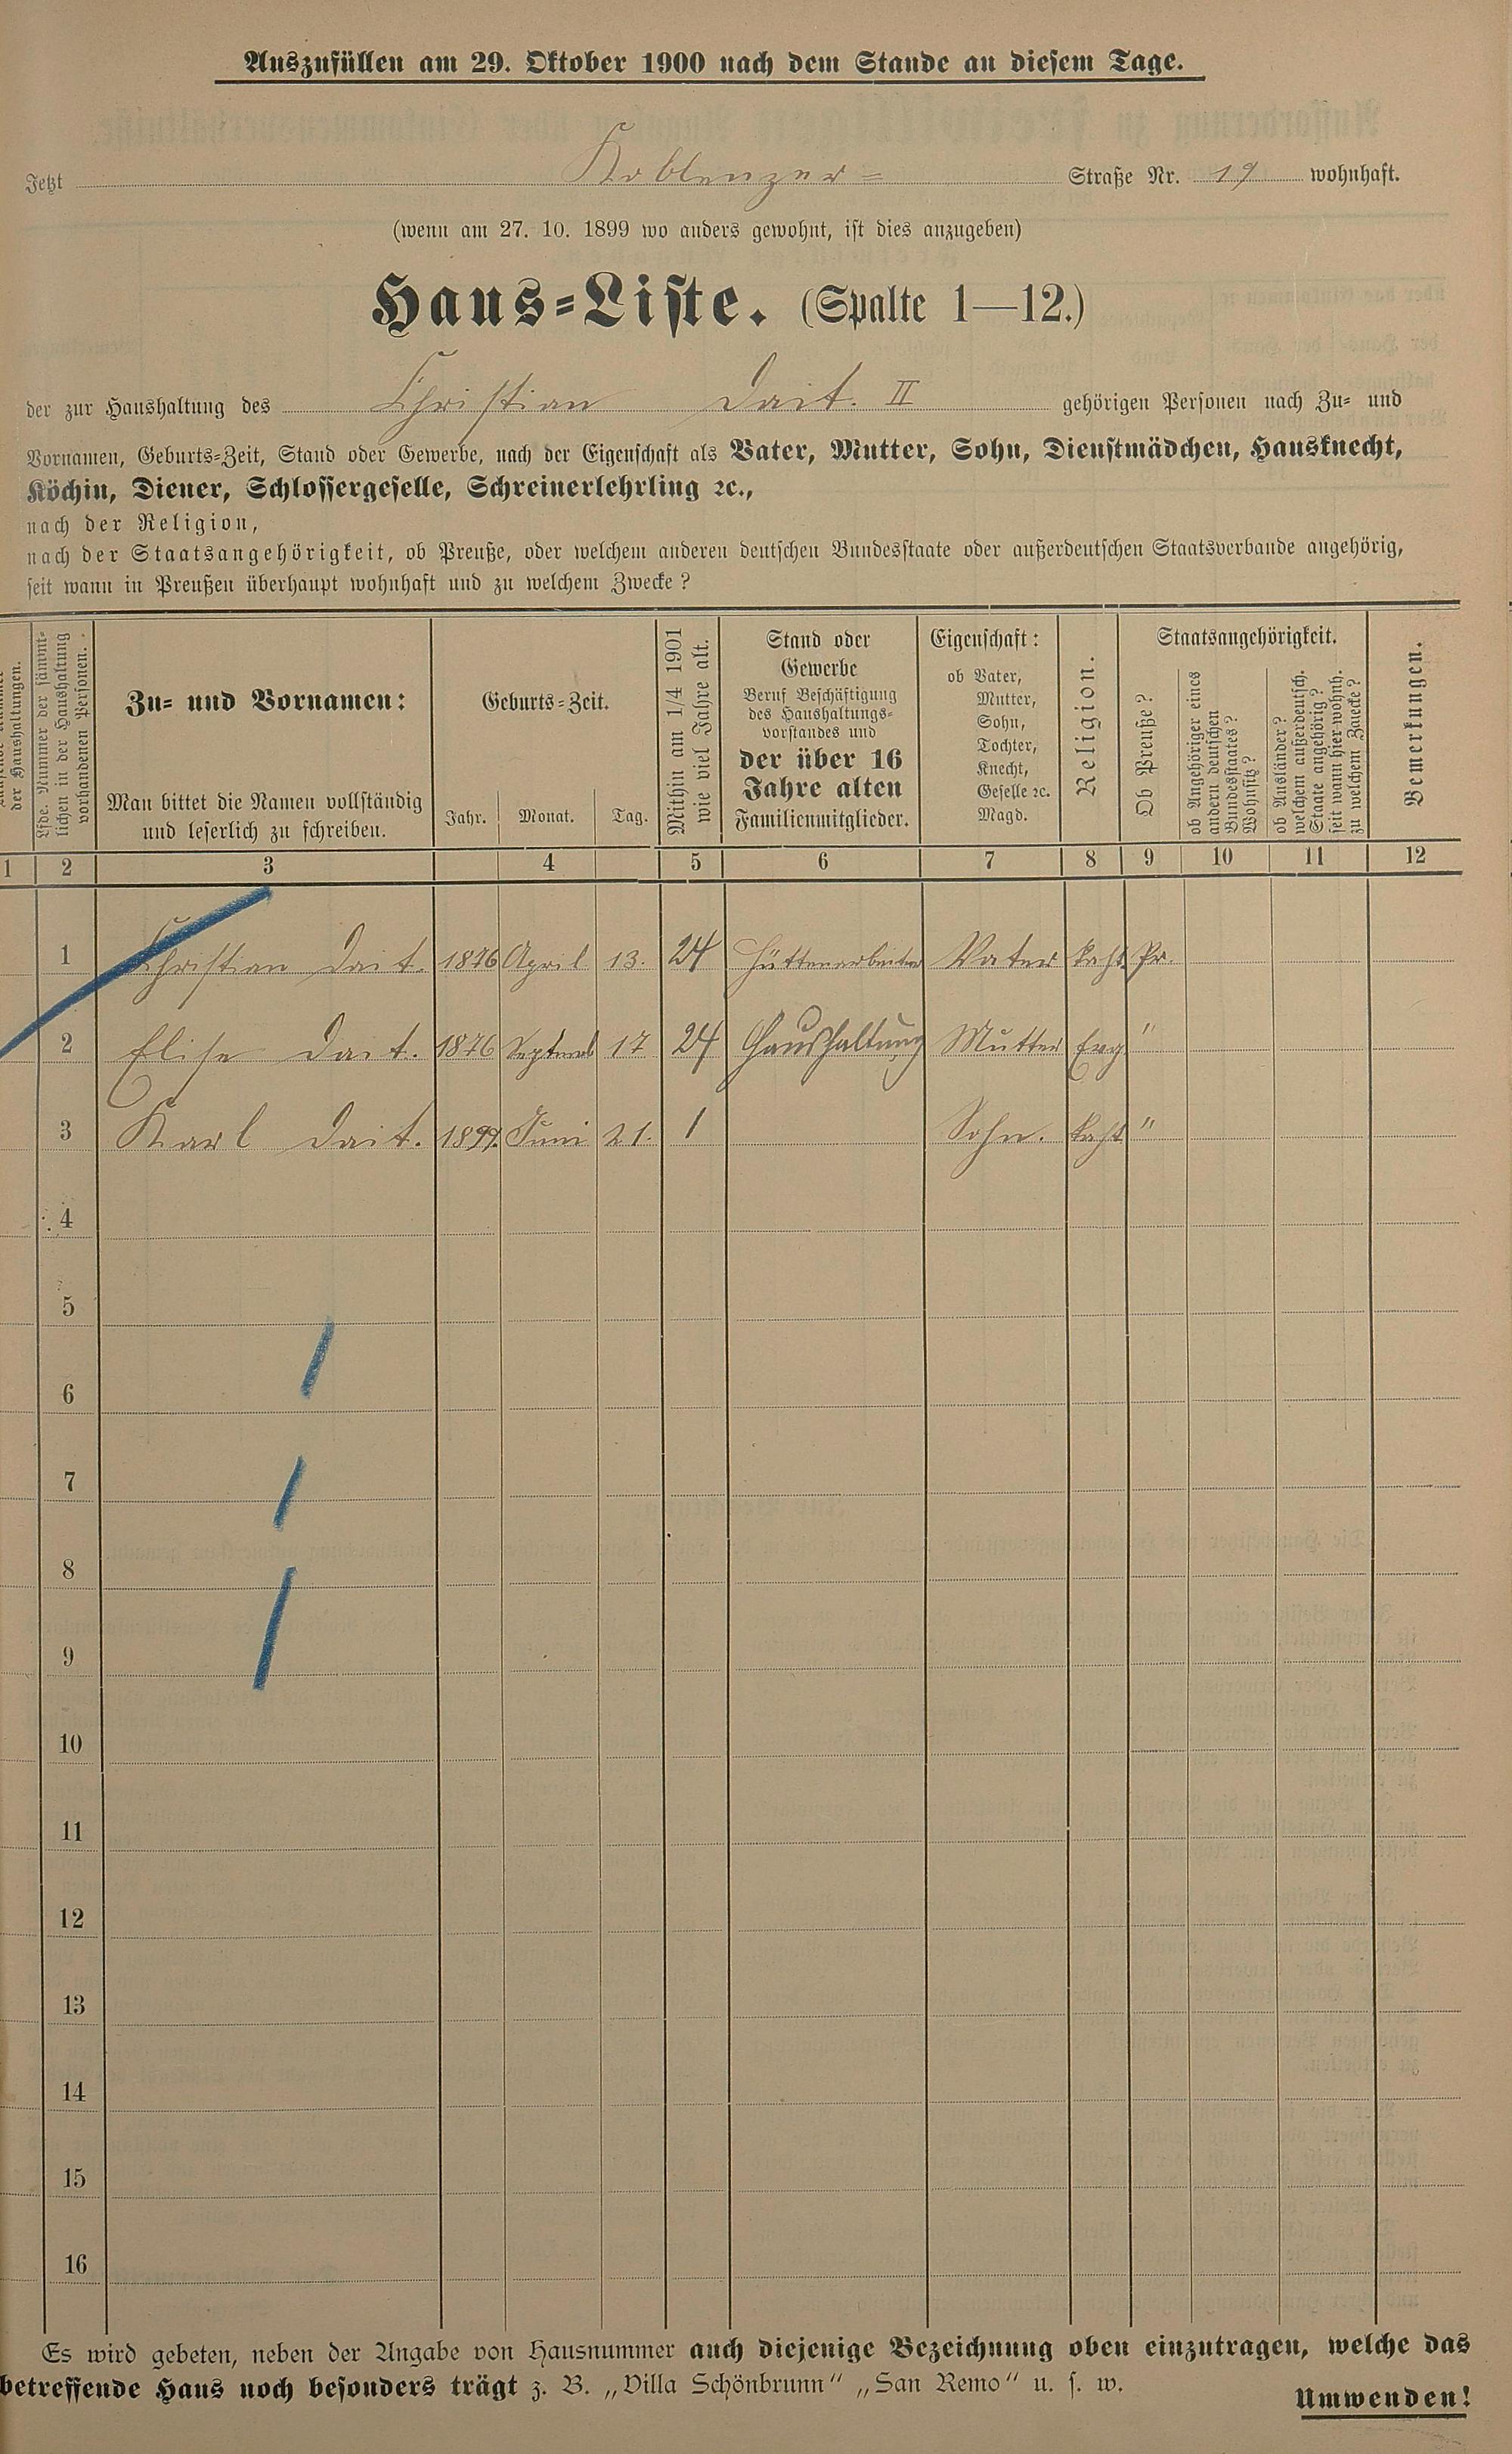 Auszufüllen am 29. Oktober 1900 nach dem Stande an diesem Tage.
Jetzt Koblenzer= Straße Nr. 19 wohnhaft.
(wenn am 27. 10. 1899 wo anders gewohnt, ist dies anzugeben)
Haus=Liste. (Spalte 1—12.)
der zur Haushaltung des Christian Dait. II gehörigen Personen nach Zu= und
Vornamen, Geburts=Zeit, Stand oder Gewerbe, nach der Eigenschaft als Vater, Mutter, Sohn, Dienstmädchen, Hausknecht,
Köchin, Diener, Schlossergeselle, Schreinerlehrling ꝛc.,
nach der Religion,
nach der Staatsangehörigkeit, ob Preuße, oder welchem anderen deutschen Bundesstaate oder außerdeutschen Staatsverbande angehörig,
seit wann in Preußen überhaupt wohnhaft und zu welchem Zwecke?
der Haushaltungen.
Lfde. Nummer der sämmt=
lichen in der Haushaltung
vorhandenen Personen.
Zu= und Vornamen:
Man bittet die Namen vollständig
und leserlich zu schreiben.
Geburts=Zeit.
Jahr. Monat. Tag.
Mithin am 1/4 1901
wie viel Jahre alt.
Stand oder
Gewerbe
Beruf Beschäftigung
des Haushaltungs=
vorstandes und
der über 16
Jahre alten
Familienmitglieder.
Eigenschaft:
ob Vater,
Mutter,
Sohn,
Tochter,
Knecht,
Geselle ꝛc.
Magd.
Religion.
Staatsangehörigkeit.
Ob Preuße?
ob Angehöriger eines
andern deutschen
Bundesstaates?
Wohnsitz?
ob Ausländer?
welchem außerdeutsch.
Staate angehörig?
seit wann hier wohnh.
zu welchem Zwecke?
Bemerkungen.
1 2 3 4 5 6 7 8 9 10 11 12
1 Christian Dait. 1876 April 13. 24 Hüttenarbeiter Vater kath. Pr.
2 Elise Dait. 1876 Septemb 17 24 Haushaltung Mutter Evg "
3 Karl Dait. 1899. Juni 21. 1 Sohn. kath "
4
5
6
7
8
9
10
11
12
13
14
15
16
Es wird gebeten, neben der Angabe von Hausnummer auch diejenige Bezeichnung oben einzutragen, welche das
betreffende Haus noch besonders trägt z. B. „Villa Schönbrunn" „San Remo" u. s. w.
Umwenden!